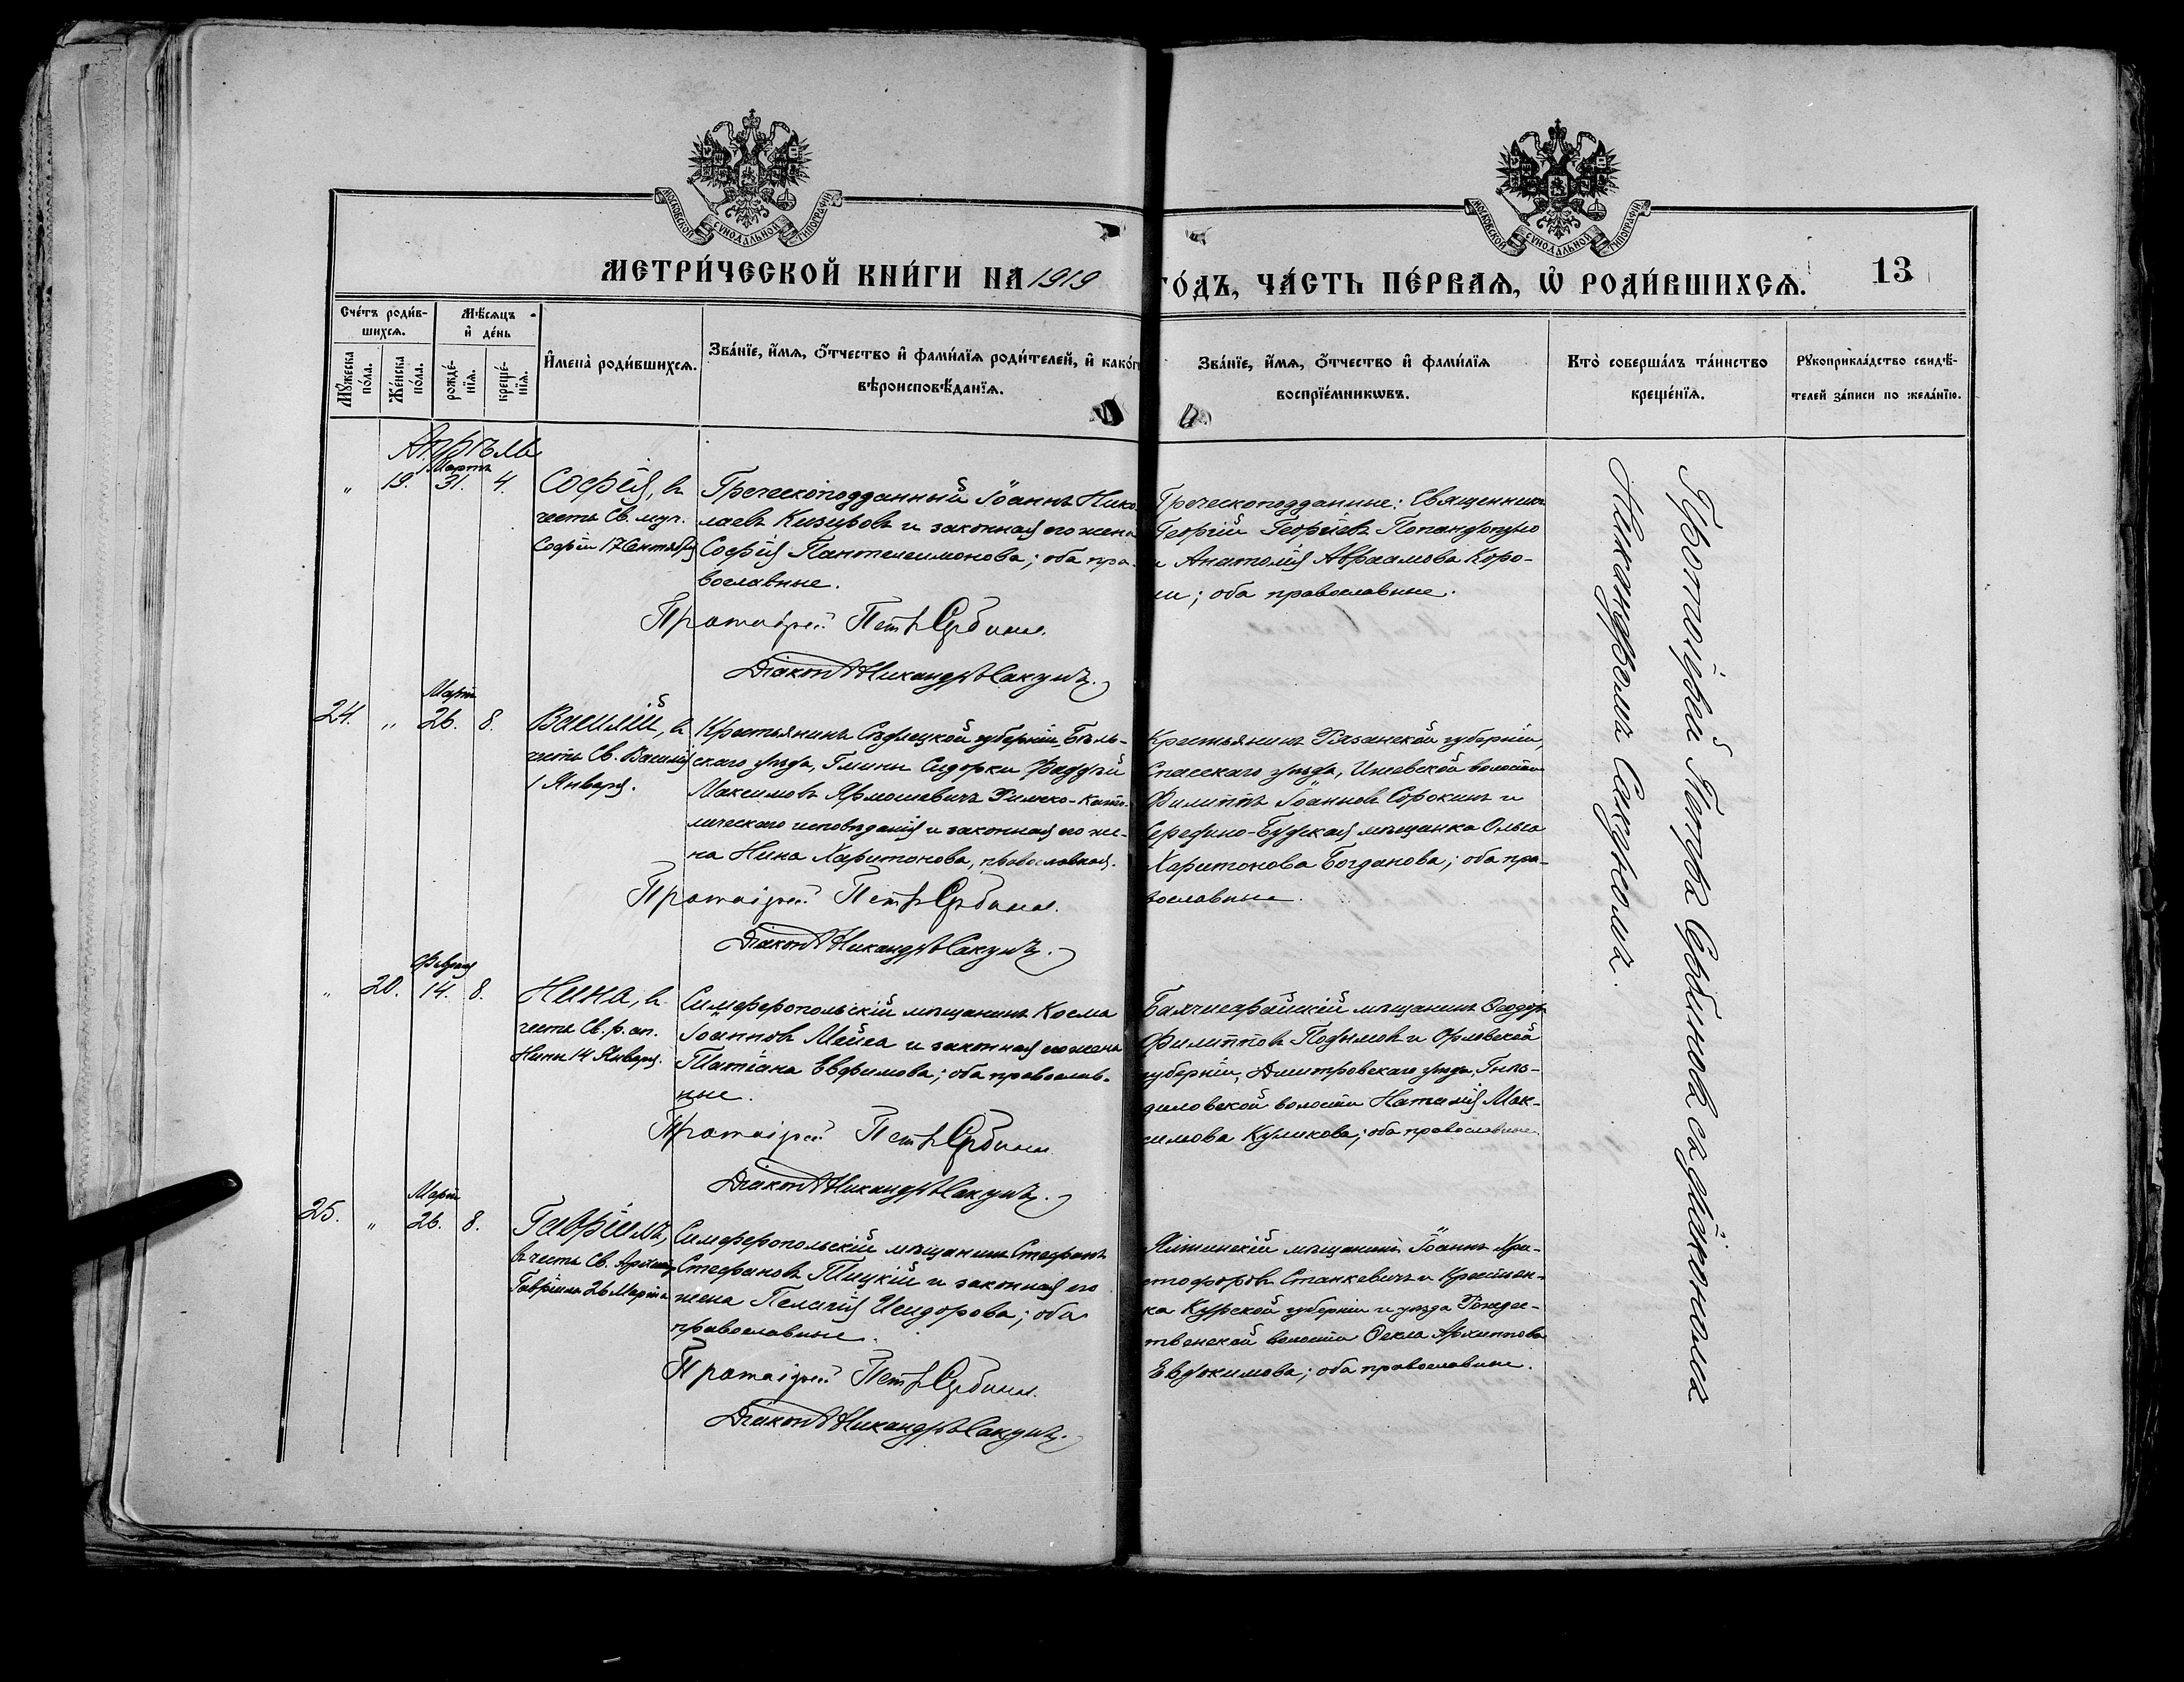 МОСКОВСКОЙ СУНОДАЛЬНОЙ ТИПОГРАФІИ
МОСКОВСКОЙ СУНОДАЛЬНОЙ ТИПОГРАФІИ
МЕТРИ́ЧЕСКОЙ КНИ́ГИ НА 1919 ГО́ДЪ, ЧА́СТЬ ПЕ́РВАѦ, Ѡ҆ РОДИ́ВШИХСѦ.
13
Сче́тъ роди́в-
шихсѧ.
Мꙋ́жеска
по́ла.
Же́нска
по́ла.
Мѣ́сяцъ
и҆ де́нь
рожде́-
нїѧ.
креще́-
нїѧ.
И҆мена̀ роди́вшихсѧ.
Зва́нїе, и҆́мѧ, ѻ҆́тчество и҆ фами́лїѧ роди́телей, и҆ како́гѡ
вѣроисповѣ́данїѧ.
Зва́нїе, и҆́мѧ, ѻ҆́тчество и҆ фами́лїѧ
воспрїе́мникѡвъ.
Кто̀ соверша́лъ та́инство
креще́нїѧ.
Рꙋкоприкла́дство свидѣ́-
телей за́писи по жела́нїю.
Апрѣль
Мартъ
" 19. 31. 4.
Софія, въ
честь Св. муч.
Софіи 17 Сентября
Греческоподданный Іоаннъ Нико-
лаевъ Кизировъ и законная его жена
Софія Пантелеимонова; оба пра-
вославные.
Протоіерей Петръ Сербиновъ
Діаконъ Никандръ Сакунъ.
Греческоподданные: Священникъ
Георгій Георгіевъ Попандопуло
и Анатолія Авраамова Коро-
ли; оба православные.
Мартъ
24. " 26. 8.
Василій, въ
честь Св. Василія
1 Января.
Крестьянинъ Сѣдлецкой губерніи, Бѣль-
скаго уѣзда, Гмины Сидорки Фаддѣй
Максимовъ Ярмошевичъ Римско-като-
лическаго исповѣданія и законная его же-
на Нина Харитонова, православная.
Протоіерей Петръ Сербиновъ
Діаконъ Никандръ Сакунъ.
Крестьянинъ Рязанской губерніи,
Спасскаго уѣзда, Ижевской волости
Филиппъ Іоанновъ Сорокинъ и
Середино-Будская мѣщанка Ольга
Харитонова Богданова; оба пра-
вославные.
Февраля
" 20. 14. 8.
Нина, въ
честь Св. р. ап.
Нины 14 Января.
Симферопольскій мѣщанинъ Косма
Іоанновъ Мейса и законная его жена
Татіана Евфимова; оба православ-
ные.
Протоіерей Петръ Сербиновъ
Діаконъ Никандръ Сакунъ.
Бахчисарайскій мѣщанинъ Ѳеодоръ
Филипповъ Подымовъ и Орловской
губерніи, Дмитровскаго уѣзда,
волости Наталія Мак-
симова Куликова; оба православные.
Мартъ
25. " 26. 8.
Гавріилъ,
въ честь Св. Архангела
Гавріила 26 Марта
Симферопольскій мѣщанинъ Стефанъ
Стефановъ Тицкій и законная его
жена Пелагія Исидорова; оба
православные.
Протоіерей Петръ Сербиновъ
Діаконъ Никандръ Сакунъ.
Ялтинскій мѣщанинъ Іоаннъ Хри-
стофоровъ Станкевичъ и Крестьян-
ка Курской губерніи и уѣзда Рождес-
твенской волости Ѳекла Архиппова
Евдокимова; оба православные.
Протоіерей Петръ Сербиновъ съ діакономъ
Никандромъ Сакуномъ.